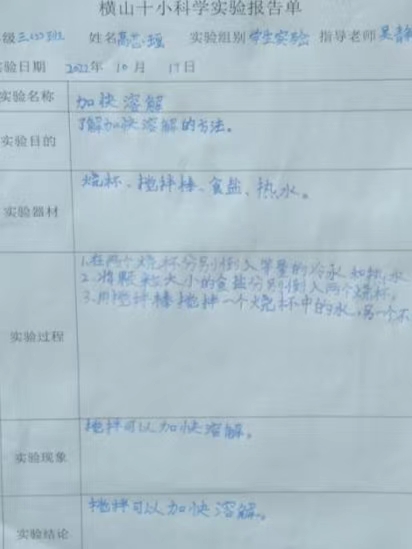 横山十小科学实验报告单
级 三(2)班 姓名 高 瑶 实验组别 学生实验 指导老师 吴
验日期 2022年 10月 17日
实验名称 加快溶解
实验目的 了解加快溶解的方法。
实验器材 烧杯、搅拌棒、食盐、热水。
1.在两个烧杯分别倒入等量的冷水
2.将颗粒大小的食盐分别倒入两个烧杯。
实验过程 3.用搅拌棒搅拌一个烧杯中的水,另一个不
实验现象 搅拌可以加快溶解。
实验结论 搅拌可以加快溶解。